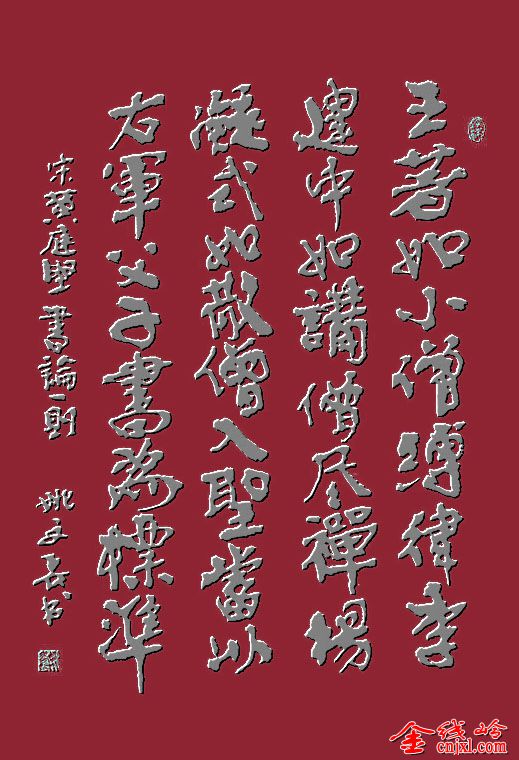 王著如小僧縛律李
建中如講僧參禪楊
凝式如散僧入聖當以
右軍父子書為標準
宋黄庭堅書論一則 姚文长书
金线岭
cnjxl.com